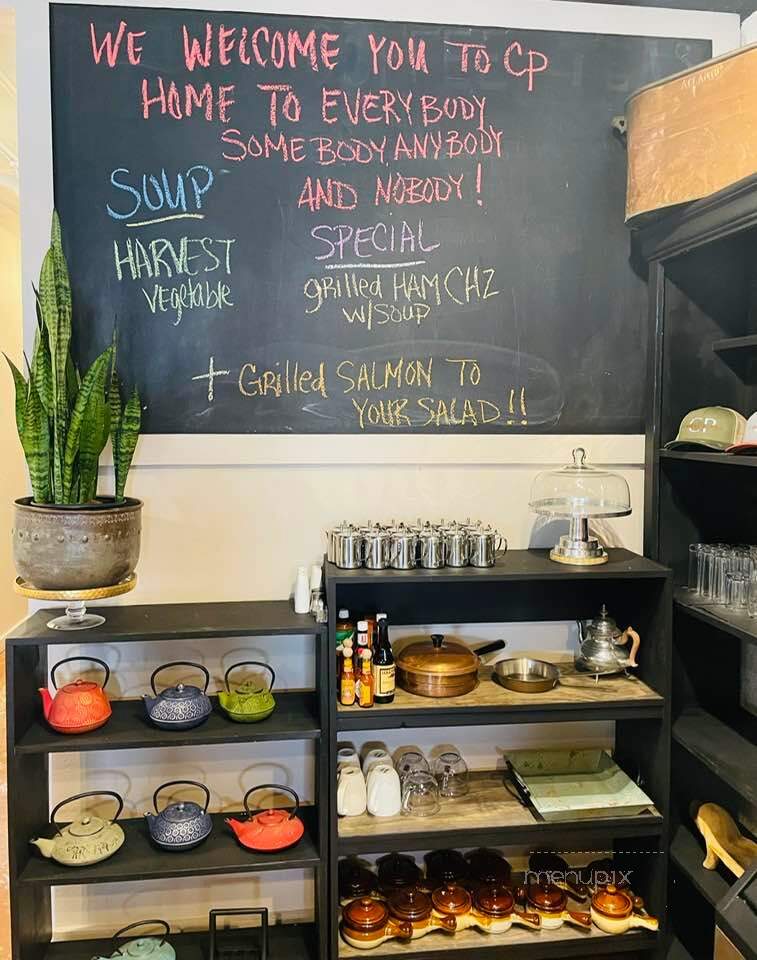 WE WELCOME YOU TO CP
HOME TO EVERYBODY
SOMEBODY, ANYBODY
AND NOBODY!
SOUP
HARVEST
vegetable
SPECIAL
grilled HAM CHZ
w/SOUP
+ Grilled SALMON TO
YOUR SALAD!!
CP
menupix